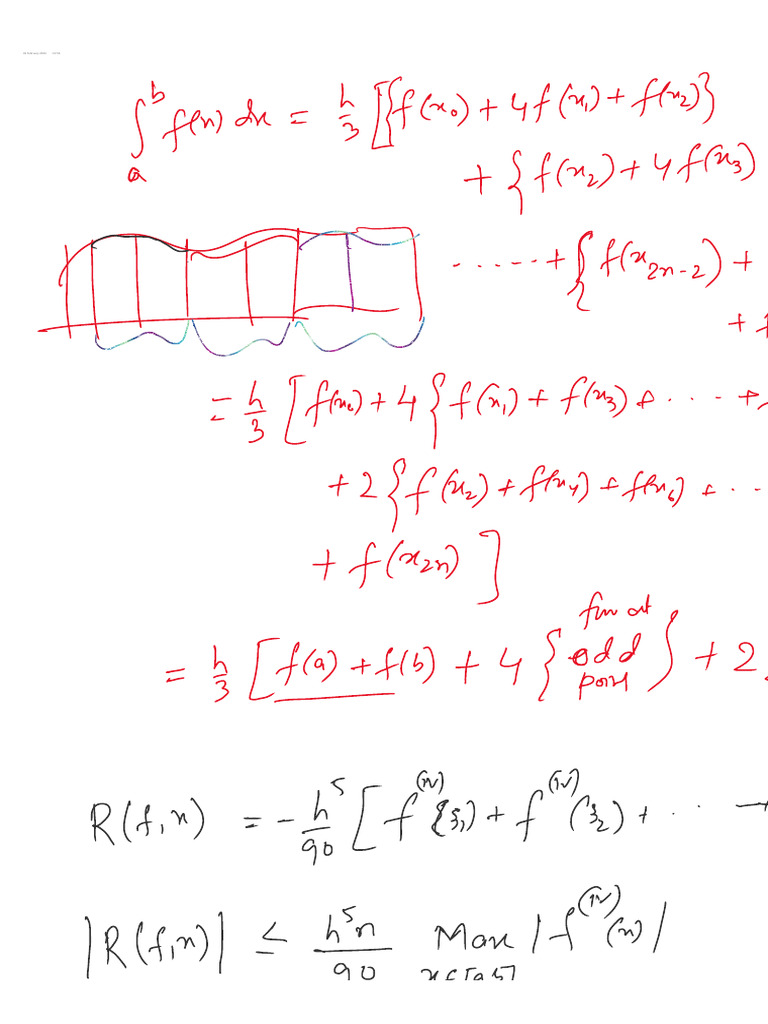 ∫_a^b f(x) dx = h/3 [{f(x₀) + 4f(x₁) + f(x₂)}
+ {f(x₂) + 4f(x₃)
..... + {f(x_{2n-2}) +
+
= h/3 [f(x₀) + 4{f(x₁) + f(x₃) + .... +
+ 2{f(x₂) + f(x₄) + f(x₆) + ..
+ f(x_{2n})]
= h/3 [f(a) + f(b) + 4{fun at odd point} + 2
R(f,x) = -h⁵/90 [f^{(iv)}(ξ₁) + f^{(iv)}(ξ₂) + ...
|R(f,x)| ≤ h⁵n/90 Max x∈[a,b] |f^{(iv)}(x)|